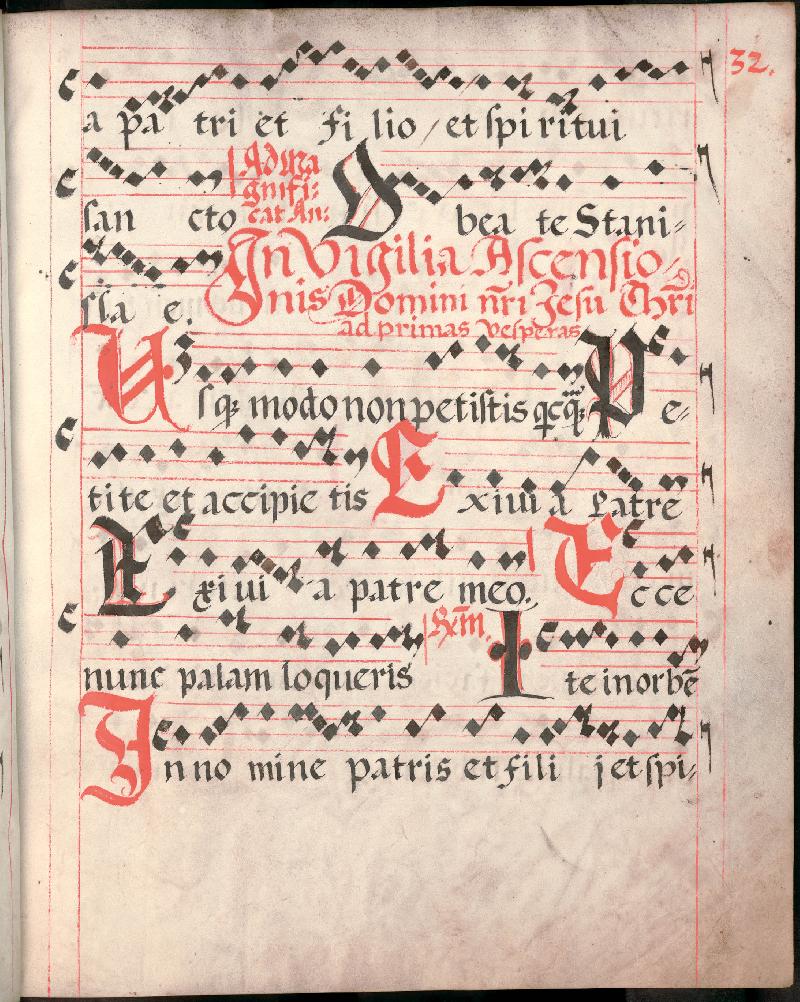 32.
a pa tri et fi lio / et spi ritui
san cto Ad Ma
gnifi:
cat An: O bea te Stani-
sla e. In Vigilia Ascensio-
nis Domini nr̄i Jesu Chri
ad primas Vesperas
Usq; modo non petistis Pe-
tite et accipie tis Exiui a Patre
Exi ui a patre meo. Ecce
nunc palam loqueris I te in orbē
In no mine patris et fili j et spi-